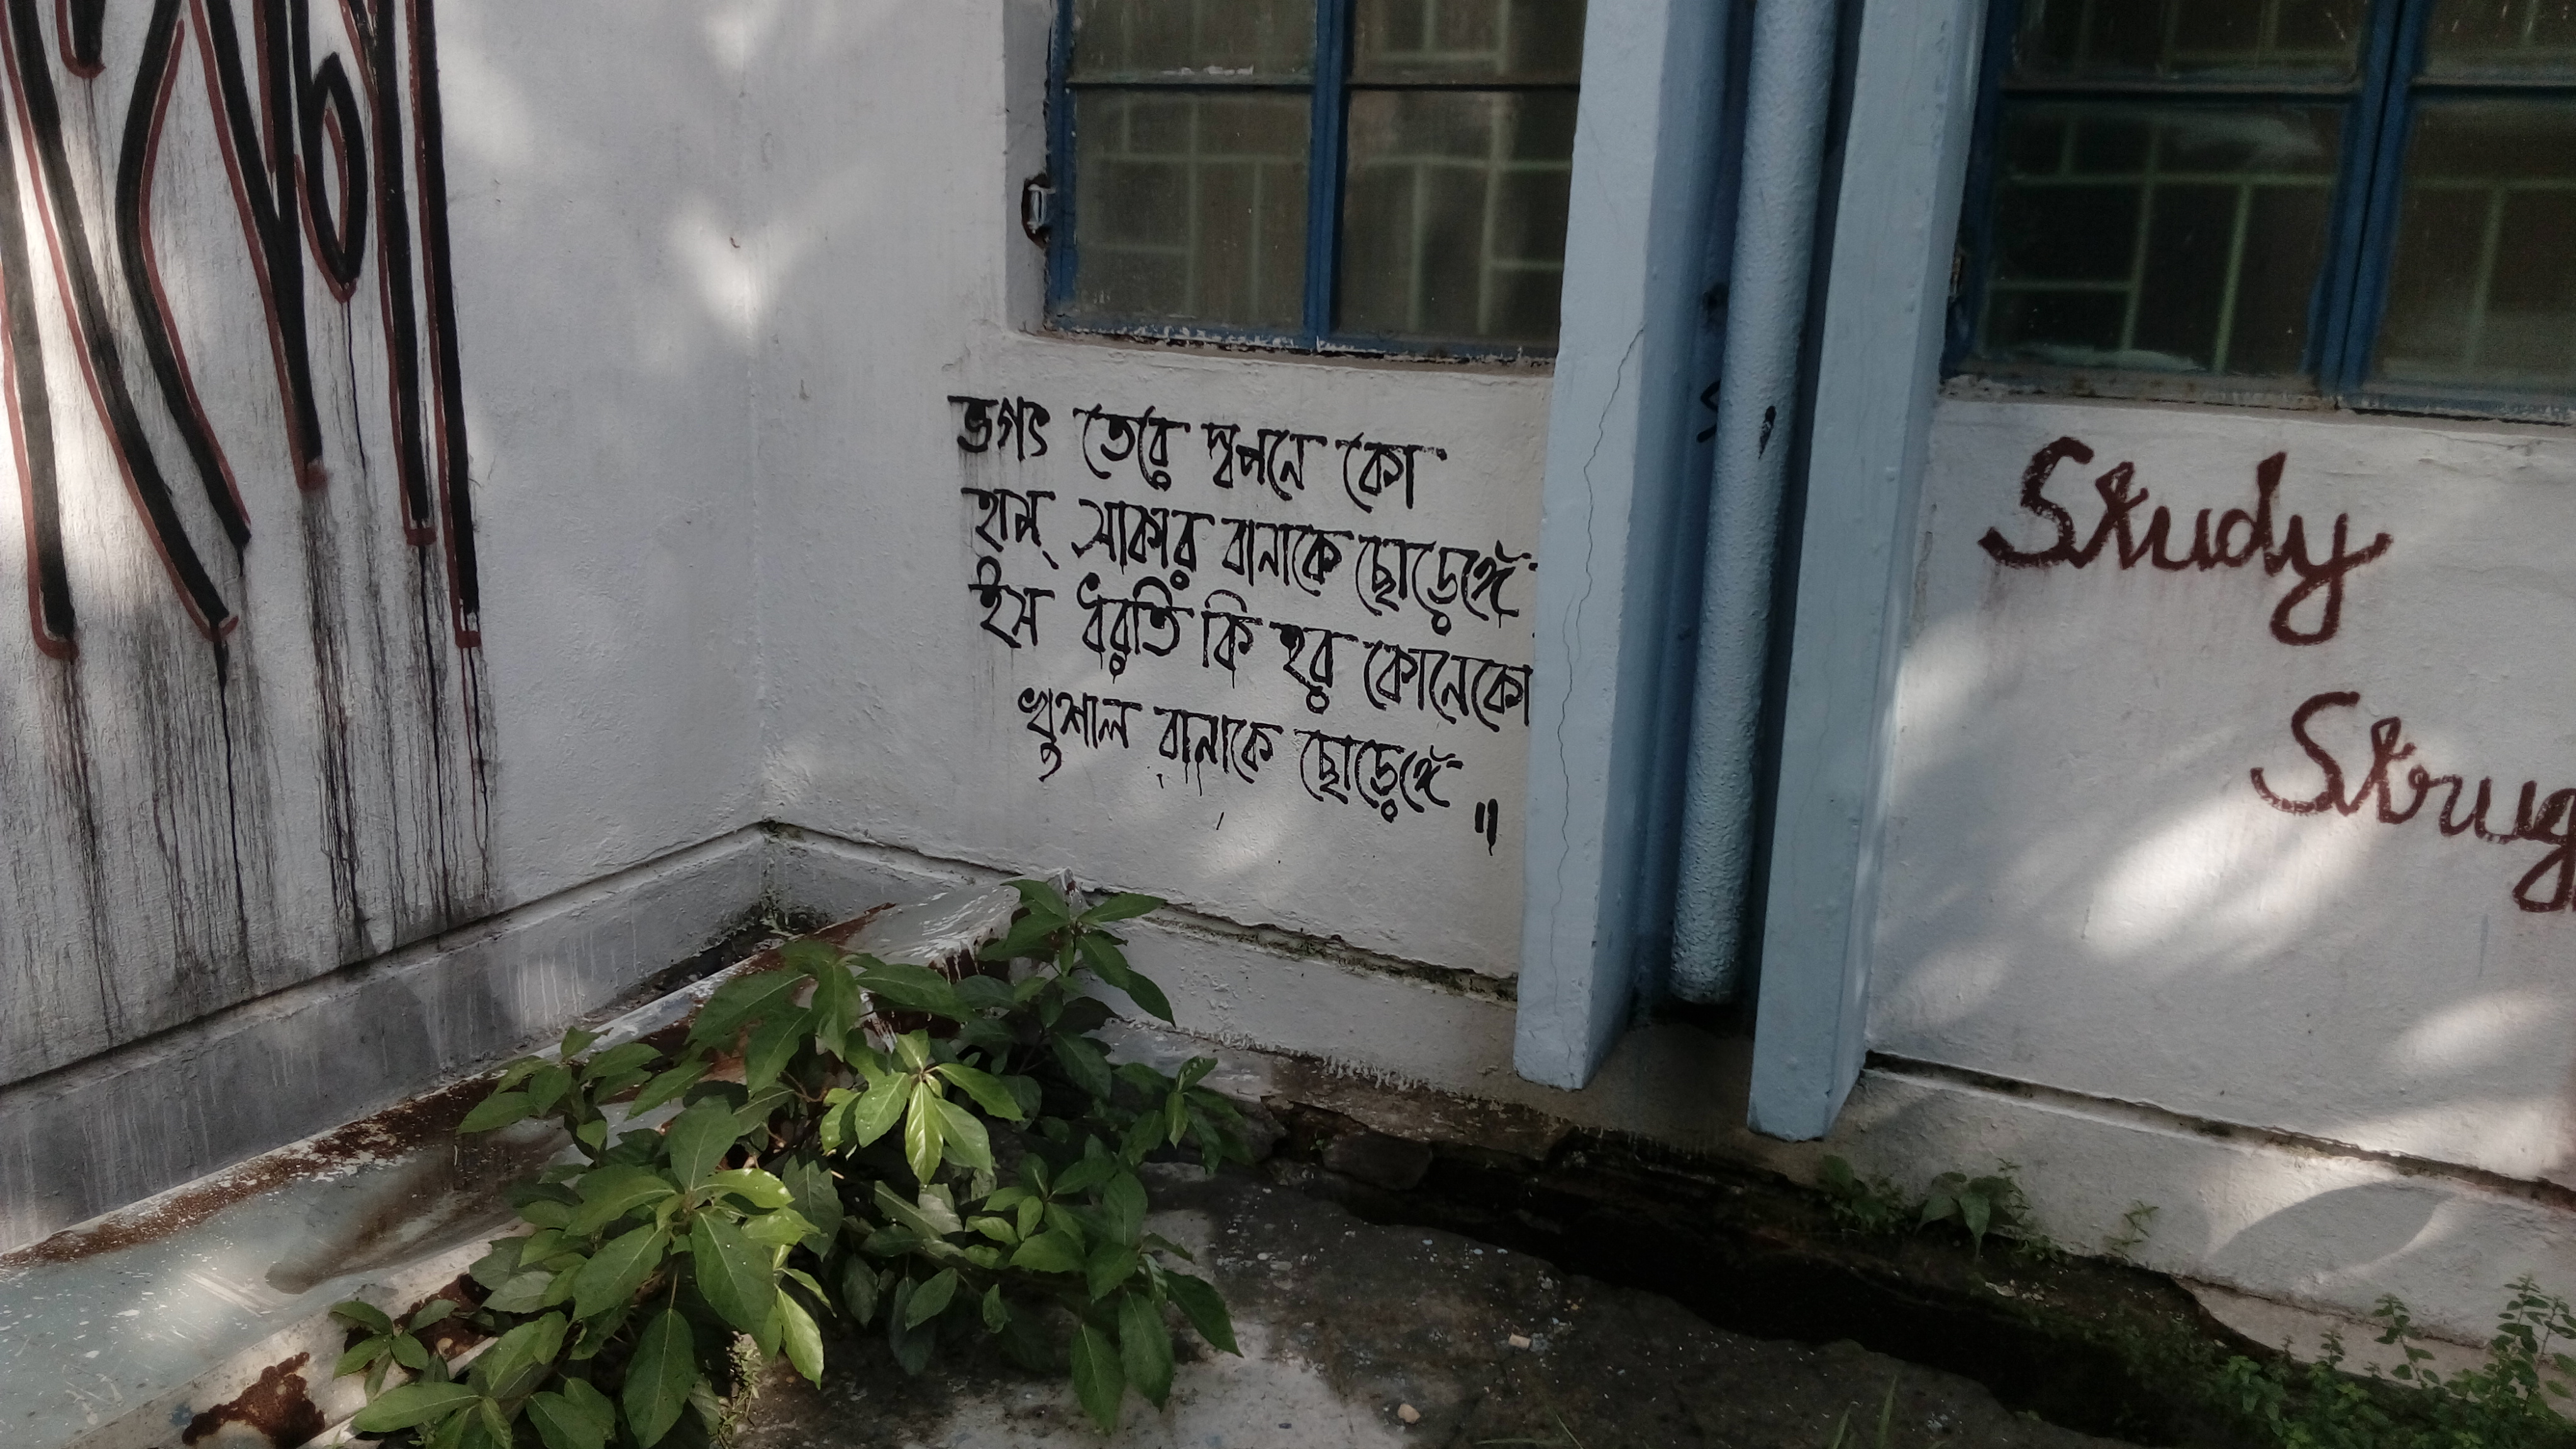 ভগৎ তেরে স্বপনে কো
হাম্ সাকার বানাকে ছোড়েঙ্গে
ইস ধরতি কি হর কোনেকো
খুশাল বানাকে ছোড়েঙ্গে ॥
Study